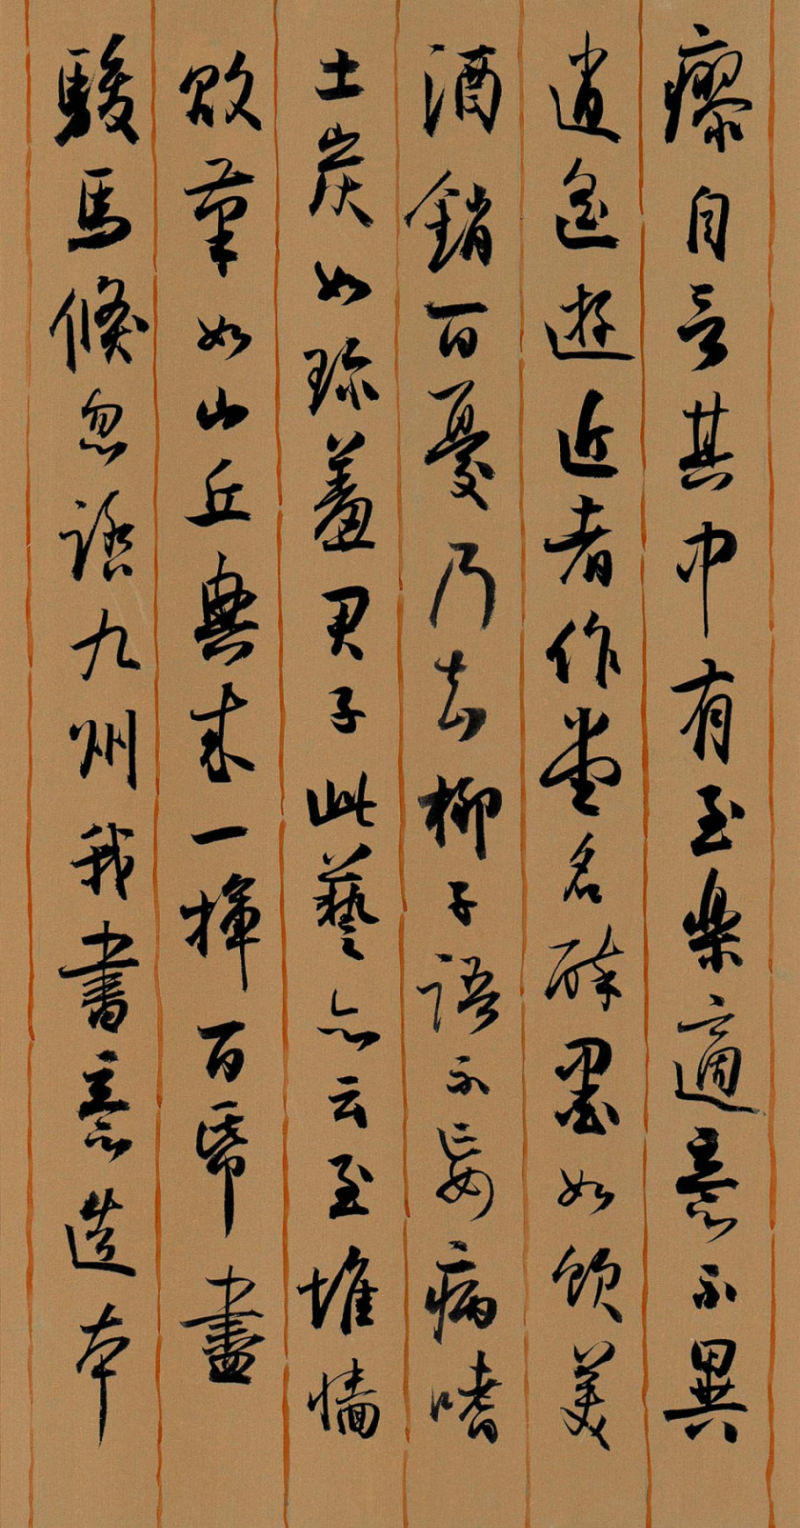 瘳自言其中有至樂適意不異
逍遙遊近者作堂名醉墨如飲美
酒銷百憂乃知柳子語不妄病嗜
土炭如珍羞君子此藝亦云至堆墻
敗筆如山丘興來一揮百紙盡
駿馬倏忽踏九州我書意造本